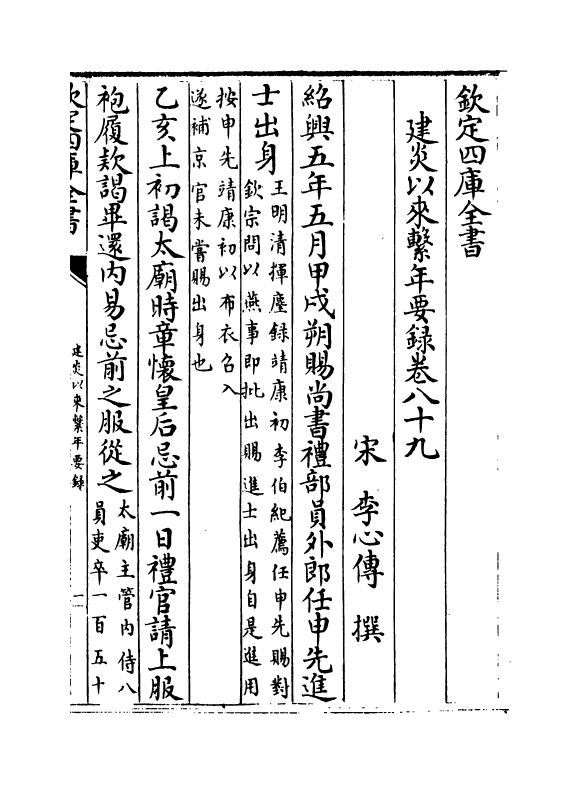 欽定四庫全書
建炎以來繫年要錄卷八十九
宋 李心傳 撰
紹興五年五月甲戌朔賜尚書禮部員外郎任申先進
士出身
王明清揮麈錄靖康初李伯紀薦任申先賜對
欽宗問以燕事即批出賜進士出身自是進用
按申先靖康初以布衣召入
遂補京官未嘗賜出身也
乙亥上初謁太廟時章懷皇后忌前一日禮官請上服
袍履欵謁畢還内易忌前之服從之
太廟主管内侍八
員吏卒一百五十
欽定四庫全書
建炎以來繫年要錄
一